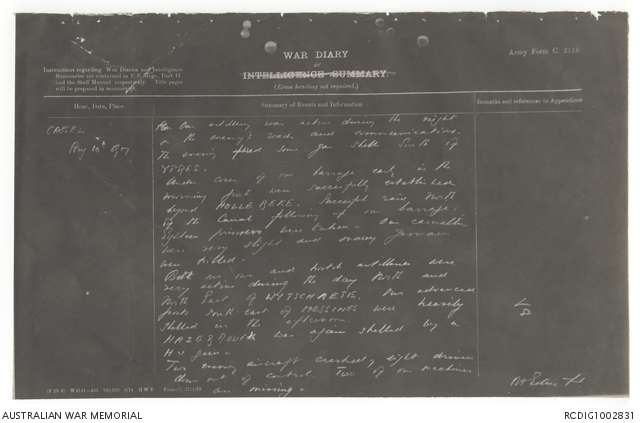 WAR DIARY
or
INTELLIGENCE SUMMARY.
(Erase heading not required.)
Army Form C. 2118.
Instructions regarding War Diaries and Intelligence
Summaries are contained in F.S. Regs., Part II.
and the Staff Manual respectively. Title pages
will be prepared in manuscript.
Hour, Date, Place
Summary of Events and Information
Remarks and references to Appendices
CASSEL
Aug 10th
Our artillery was active during the night
on the enemy's roads and communications.
The enemy some gas shells South of
YPRES.
Under cover of our barrage early in the
morning posts were successfully established
beyond HOLLEBEKE. Successful raid North
of the Canal following up our barrage.
prisoners were taken. Our casualties
were very slight and many Germans
were killed.
Both our own and hostile artilleries were
very active during the day North and
North East of WYTSCHAETE. Our advanced
posts South East of MESSINES were heavily
shelled in the afternoon.
HAZEBROUCK was again shelled by a
H.V. gun.
Two enemy aircraft crashed, eight driven
down out of control. Two of our machines
are missing.
AUSTRALIAN WAR MEMORIAL
RCDIG1002831